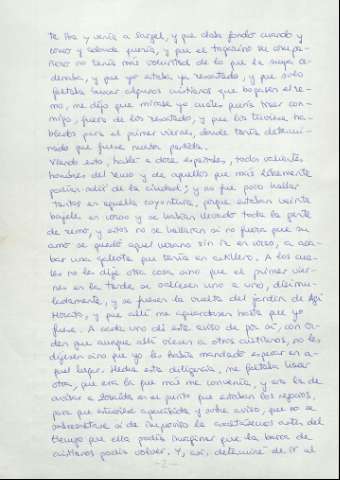 te iba y venía a Sargel, y que daba fondo cuando y
como y adonde quería, y que el tagarino su compa-
ñero no tenía más voluntad de lo que la suya or-
denaba, y que yo estaba ya rescatado, y que solo
faltaba buscar algunos cristianos que bogasen el re-
mo, me dijo que mirase yo cuáles quería traer con-
migo, fuera de los rescatados, y que los tuviese ha-
blados para el primer viernes, donde tenía determi-
nado que fuese nuestra partida.
Viendo esto, hablé a doce españoles, todos valientes
hombres del remo y de aquellos que más libremente
podían salir de la ciudad; y no fue poco hallar
tantos en aquella coyuntura, porque estaban veinte
bajeles en corso y se habían llevado toda la gente
de remo, y estos no se hallaran si no fuera que su
amo se quedó aquel verano sin ir en corso, a aca-
bar una galeota que tenía en astillero. A los cua-
les no les dije otra cosa sino que el primer vier-
nes en la tarde se saliesen uno a uno, disimu-
ladamente, y se fuesen la vuelta del jardín de Agi
Morato, y que allí me aguardasen hasta que yo
fuese. A cada uno di este aviso de por sí, con or-
den que aunque allí viesen a otros cristianos, no les
dijesen sino que yo les había mandado esperar en a-
quel lugar. Hecha esta diligencia, me faltaba hacer
otra, que era la que más me convenía, y era la de
avisar a Zoraida en el punto que estaban los negocios,
para que estuviese apercibida y sobre aviso, que no se
sobresaltase si de improviso la asaltásemos antes del
tiempo que ella podía imaginar que la barca de
cristianos podía volver. Y, así, determiné de ir al
- 2 -